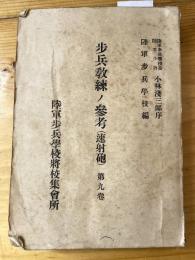 小林淺三郎序
陸軍步兵學校編
步兵教練ノ參考(速射砲) 第九卷
陸軍步兵學校將校集會所